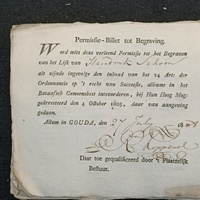 Permissie-Billet tot Begraving.
Word mits deze verleend Permissie tot het Begraven
van het Lijk van Hendrik Schoon
als zijnde ingevolge den inhoud van het 24 Art: der
Ordonnantie op 't recht van Successie, alomme in het
Bataafsch Gemeenebest intevoorderen, bij Hun Hoog Mog:
gearresteerd den 4 October 1805, daar van aangeving
gedaan.
Actum in GOUDA, den 27 July 1808
Daar toe gequalificeerd door 't Plaatzelijk
Bestuur.